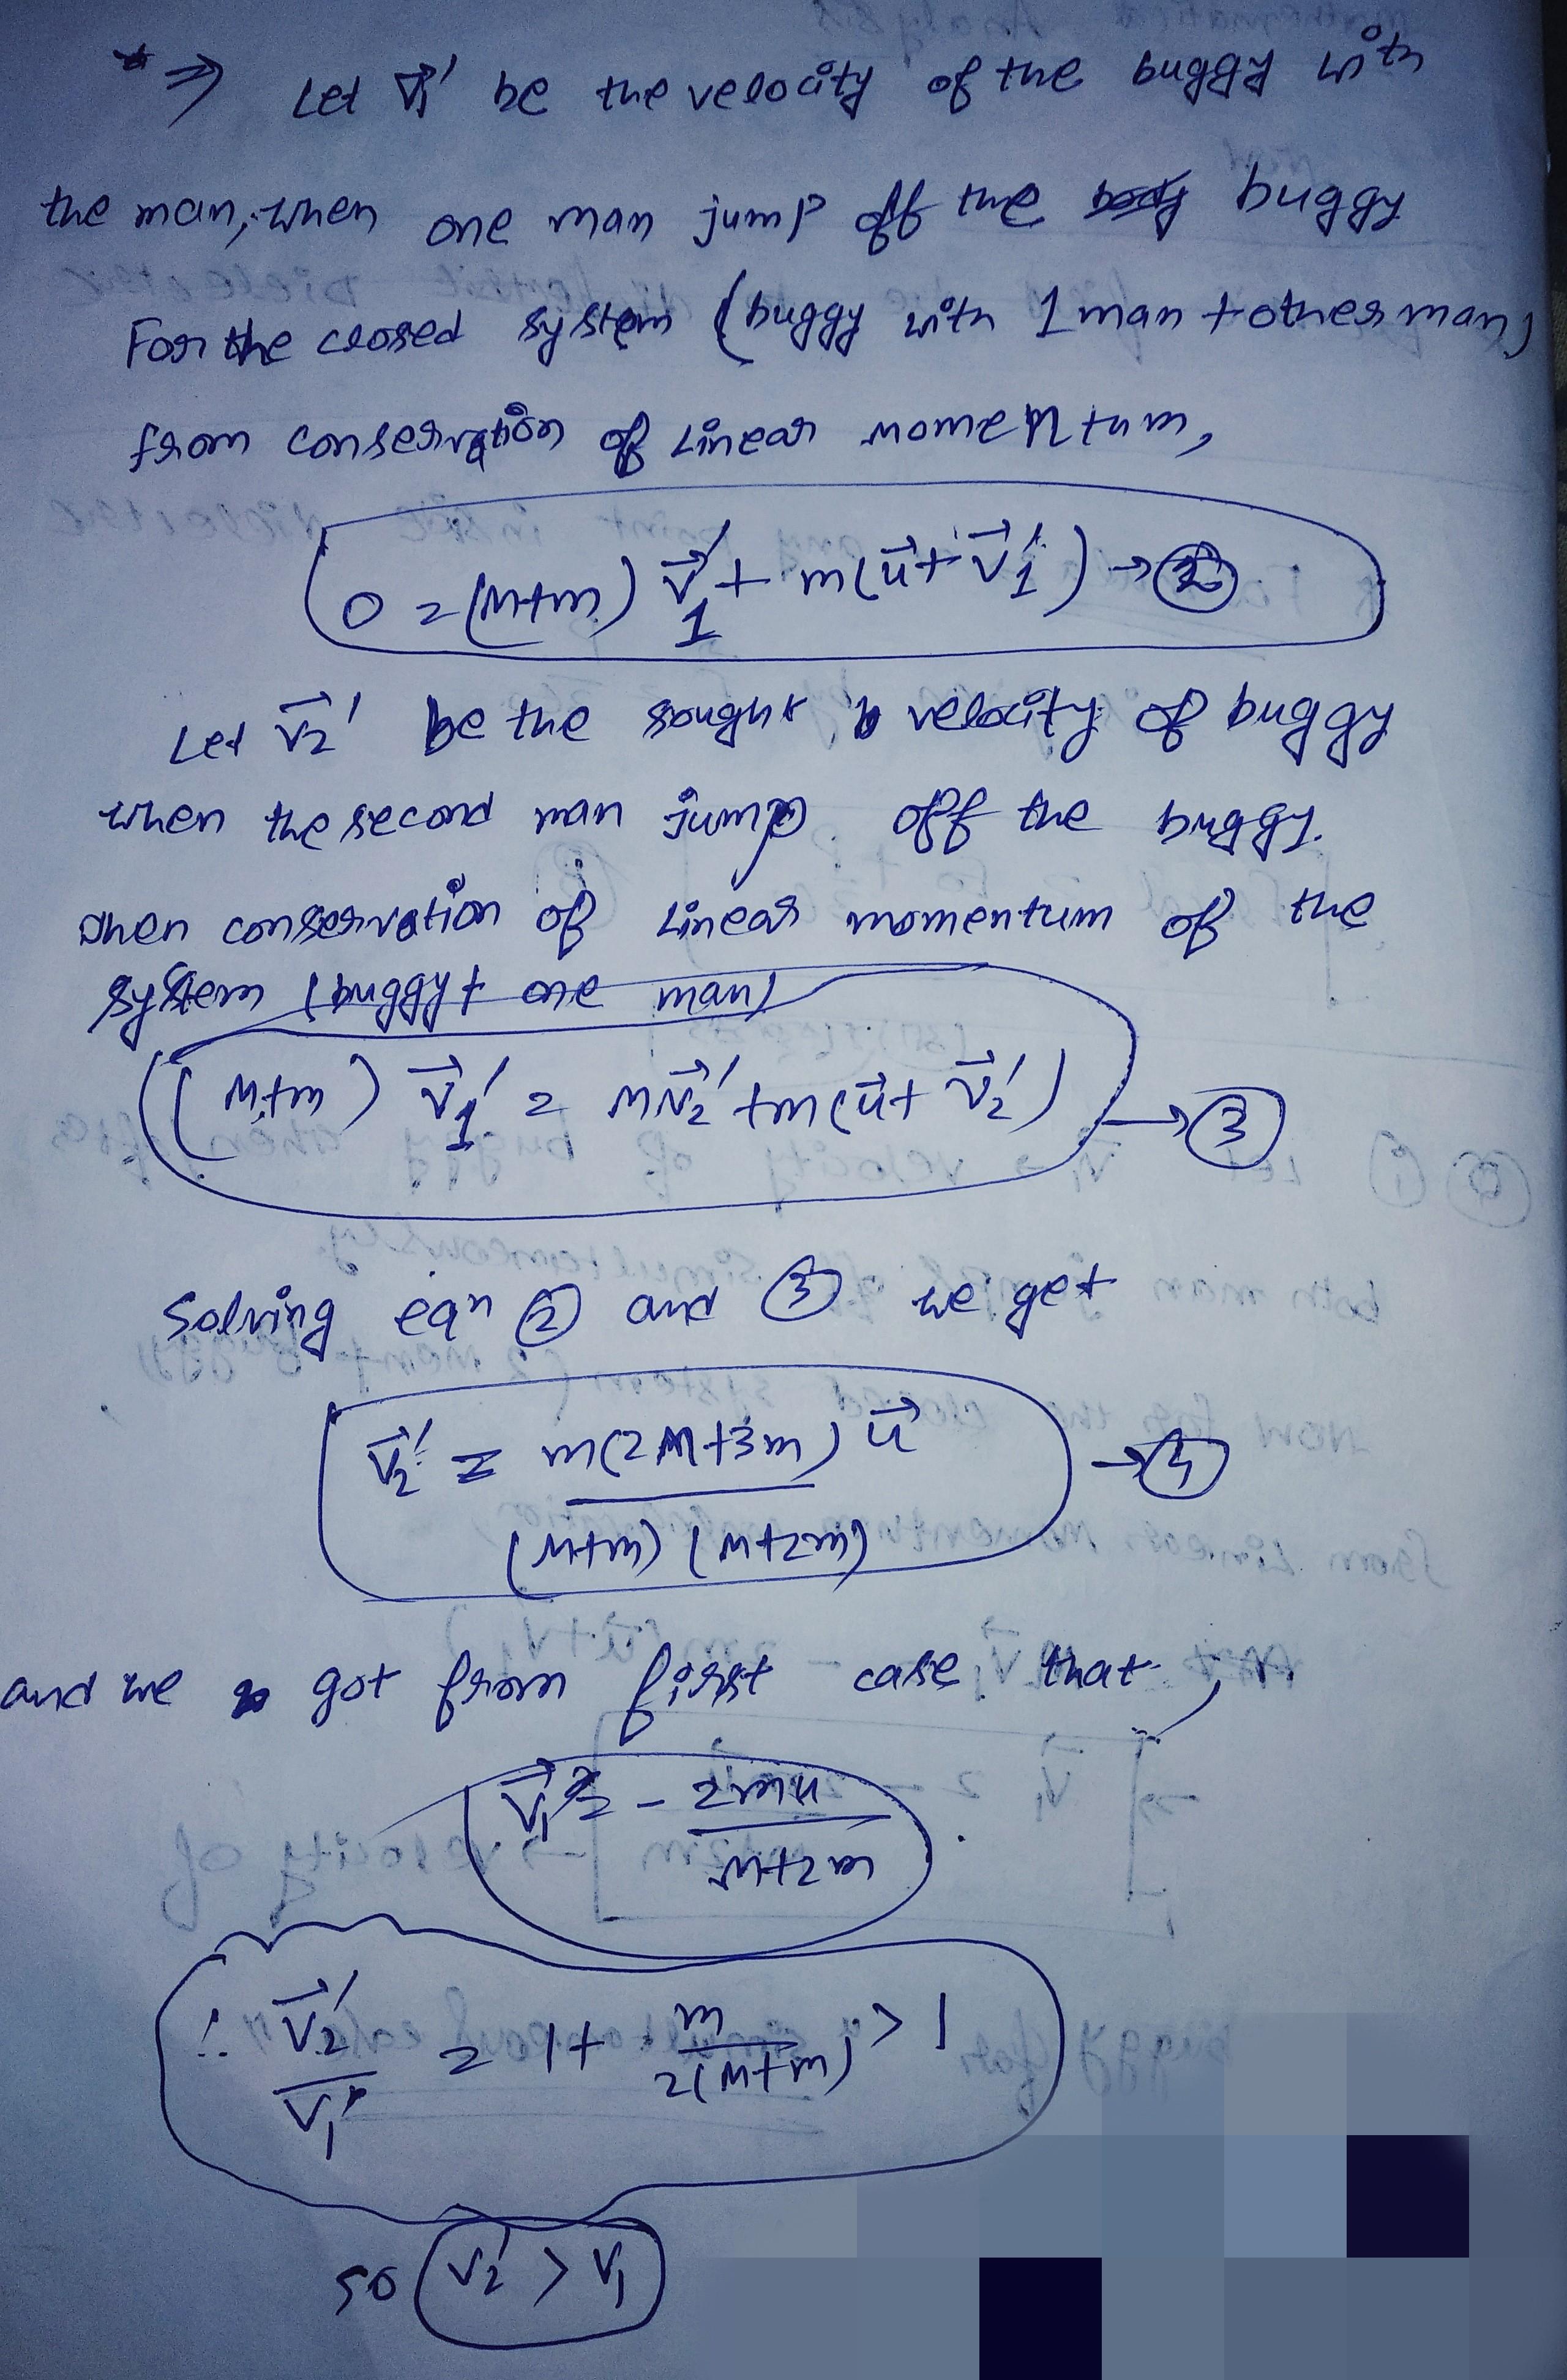 ⇒ Let v⃗1' be the velocity of the buggy with
the man, when one man jump off the buggy
For the closed system (buggy with 1 man + other man)
from conservation of Linear momentum,
0 = (M+m) v⃗1' + m(u⃗ + v⃗1') → ②
Let v⃗2' be the sought velocity of buggy
when the second man jump off the buggy.
then conservation of Linear momentum of the
system (buggy + one man)
(M+m) v⃗1' = Mv⃗2' + m(u⃗ + v⃗2') → ③
Solving eqn ② and ③ we get
v⃗2' = m(2M+3m) u⃗ / (M+m) (M+2m) → ④
and we got from first case that,
v⃗1 = - 2mu / M+2m .
∴ v⃗2' / v1 = 1 + m / 2(M+m) > 1
so v2' > v1